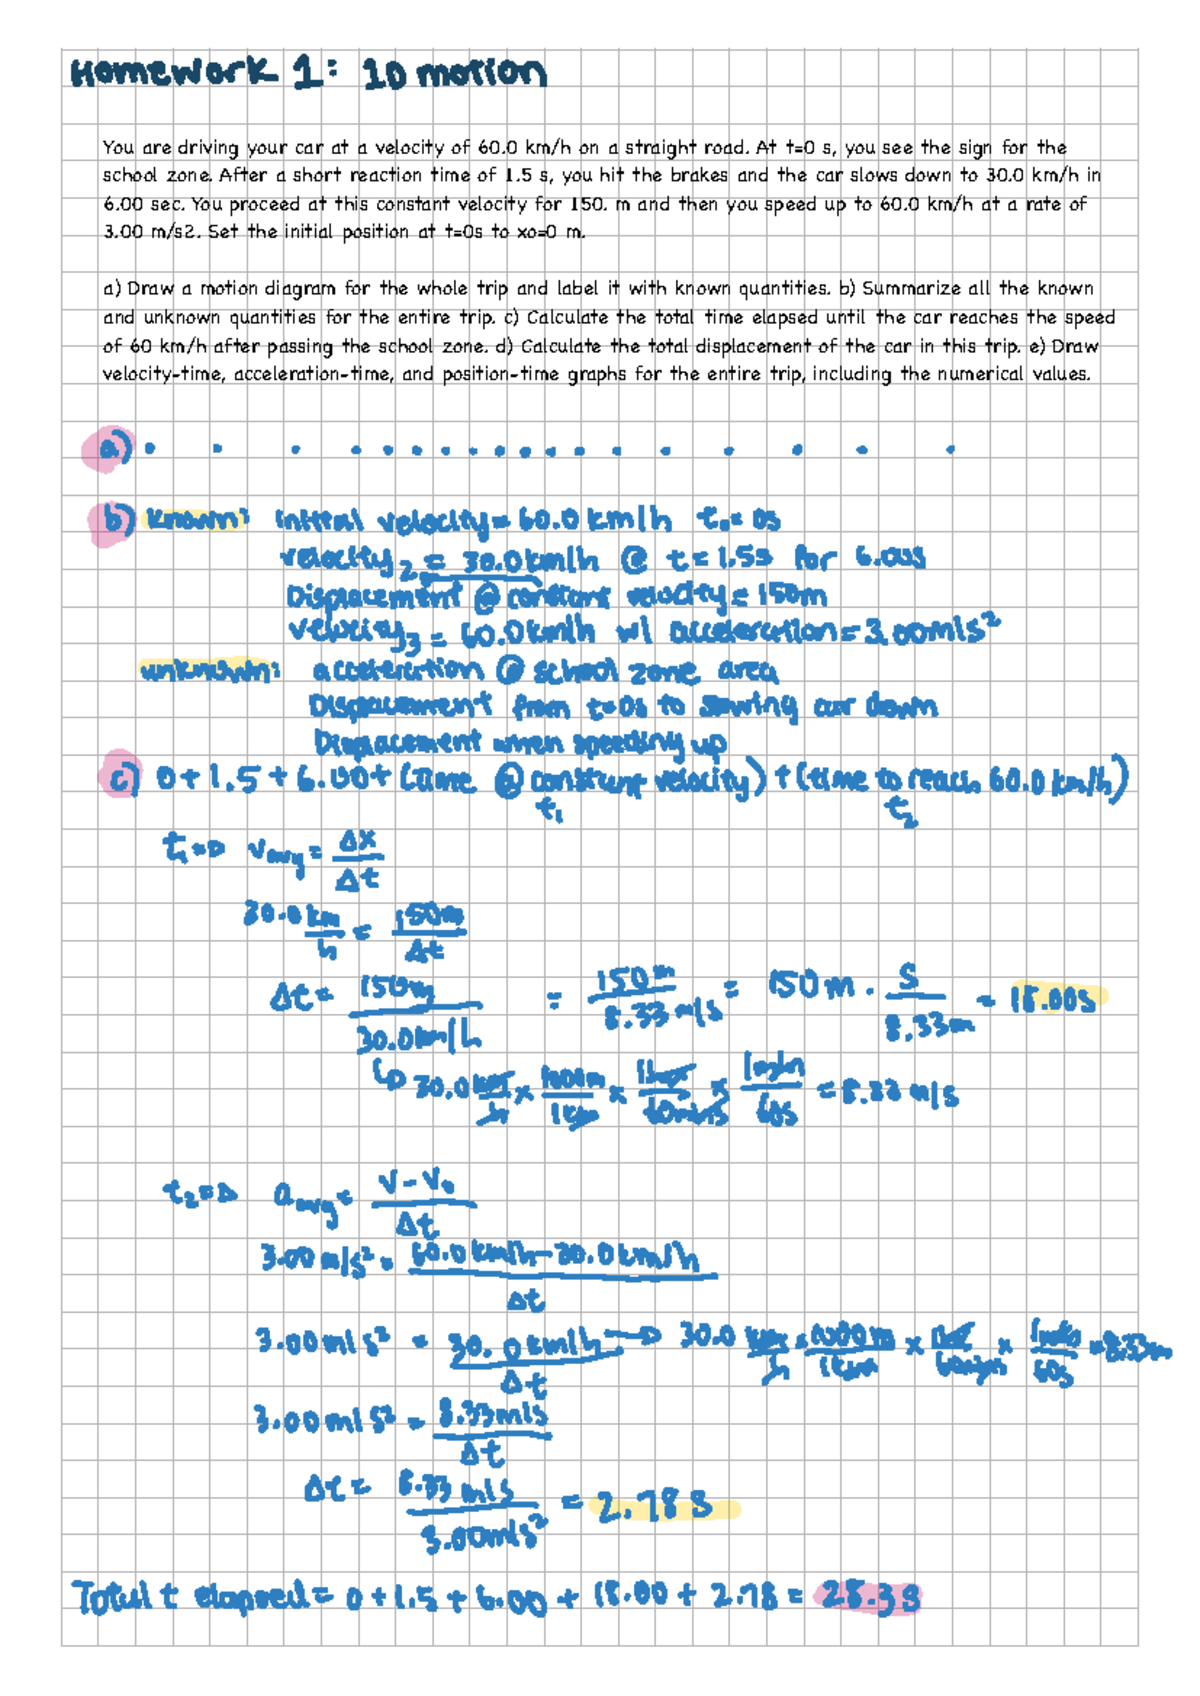 Homework 1: 1D motion
You are driving your car at a velocity of 60.0 km/h on a straight road. At t=0 s, you see the sign for the
school zone. After a short reaction time of 1.5 s, you hit the brakes and the car slows down to 30.0 km/h in
6.00 sec. You proceed at this constant velocity for 150. m and then you speed up to 60.0 km/h at a rate of
3.00 m/s2. Set the initial position at t=0s to xo=0 m.
a) Draw a motion diagram for the whole trip and label it with known quantities. b) Summarize all the known
and unknown quantities for the entire trip. c) Calculate the total time elapsed until the car reaches the speed
of 60 km/h after passing the school zone. d) Calculate the total displacement of the car in this trip. e) Draw
velocity-time, acceleration-time, and position-time graphs for the entire trip, including the numerical values.
a)
b) known: Initial velocity = 60.0 km/h t₀ = 0s
velocity₂ = 30.0 km/h @ t = 1.5s for 6.00s
Displacement @ constant velocity = 150m
velocity₃ = 60.0 km/h w/ acceleration = 3.00 m/s²
unknown: acceleration @ school zone area
Displacement from t=0s to slowing car down
Displacement when speeding up
c) 0 + 1.5 + 6.00 + (time @ constant velocity) + (time to reach 60.0 km/h)
t₁ t₂
t₁ => v avg = Δx / Δt
30.0 km/h = 150m / Δt
Δt = 150m / 30.0 km/h = 150 m / 8.33 m/s = 150 m · s / 8.33 m = 18.00s
↳ 30.0 km/h x 1000m/1km x 1hr/60mins x 1min/60s = 8.33 m/s
t₂ => a avg = v - v₀ / Δt
3.00 m/s² = 60.0 km/h - 30.0 km/h / Δt
3.00 m/s² = 30.0 km/h / Δt → 30.0 km/h x 1000 m/1km x 1hr/60min x 1min/60s = 8.33m
3.00 m/s² = 8.33 m/s / Δt
Δt = 8.33 m/s / 3.00 m/s² = 2.78 s
Total t elapsed = 0 + 1.5 + 6.00 + 18.00 + 2.78 = 28.3 s